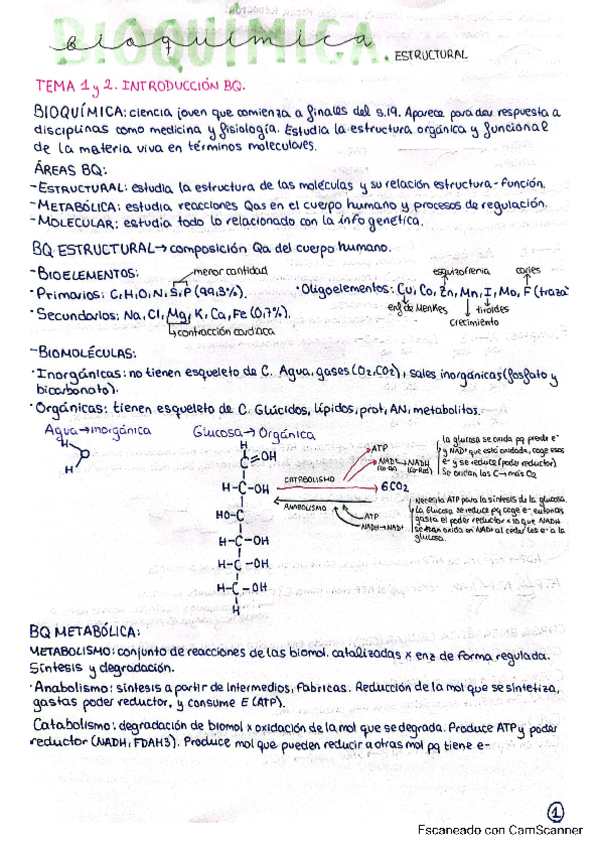 BIOQUÍMICA. ESTRUCTURAL
TEMA 1 y 2. INTRODUCCIÓN BQ.
BIOQUÍMICA: ciencia joven que comienza a finales del s.19. Aparece para dar respuesta a
disciplinas como medicina y fisiología. Estudia la estructura orgánica y funcional
de la materia viva en términos moleculares.
ÁREAS BQ:
- ESTRUCTURAL: estudia la estructura de las moléculas y su relación estructura-función.
- METABÓLICA: estudia reacciones Qas en el cuerpo humano y procesos de regulación.
- MOLECULAR: estudia todo lo relacionado con la info genética.
BQ ESTRUCTURAL → composición Qa del cuerpo humano.
- BIOELEMENTOS:
menor cantidad
esquizofrenia
caries
· Primarios: C, H, O, N, S, P (99,3%).
· Oligoelementos: Cu, Co, Zn, Mn, I, Mo, F (traza
enf de Menkes
tiroides
crecimiento
· Secundarios: Na, Cl, Mg, K, Ca, Fe (0,7%).
contracción cardiaca
- BIOMOLÉCULAS:
· Inorgánicas: no tienen esqueleto de C. Agua, gases (O2, CO2), sales inorgánicas (fosfato y
bicarbonato).
· Orgánicas: tienen esqueleto de C. Glúcidos, lípidos, prot, AN, metabolitos.
Agua → inorgánica
Glucosa → Orgánica
O
H
H
H
C=OH
H-C-OH
HO-C
H-C-OH
H-C-OH
H-C-OH
H
CATABOLISMO
ATP
NAD+ → NADH
6CO2
ANABOLISMO
ATP
NADH → NAD+
la glucosa se oxida pq pierde e-
y NAD+ que está oxidada, coge esos
e- y se reduce (poder reductor)
se oxidan los C → más O2
Necesita ATP para la síntesis de la glucosa.
la glucosa se reduce pq coge e-, entonces
gasta el poder reductor x lo que NADH
se oxida en NAD+ al ceder los e- a la
glucosa.
BQ METABÓLICA:
METABOLISMO: conjunto de reacciones de las biomol. catalizadas x enz de forma regulada.
Síntesis y degradación.
· Anabolismo: síntesis a partir de intermedios, fabricas. Reducción de la mol que se sintetiza,
gastas poder reductor, y consume E (ATP).
Catabolismo: degradación de biomol x oxidación de la mol que se degrada. Produce ATP y poder
reductor (NADH, FDAH3). Produce mol que pueden reducir a otras mol pq tiene e-
1
Escaneado con CamScanner